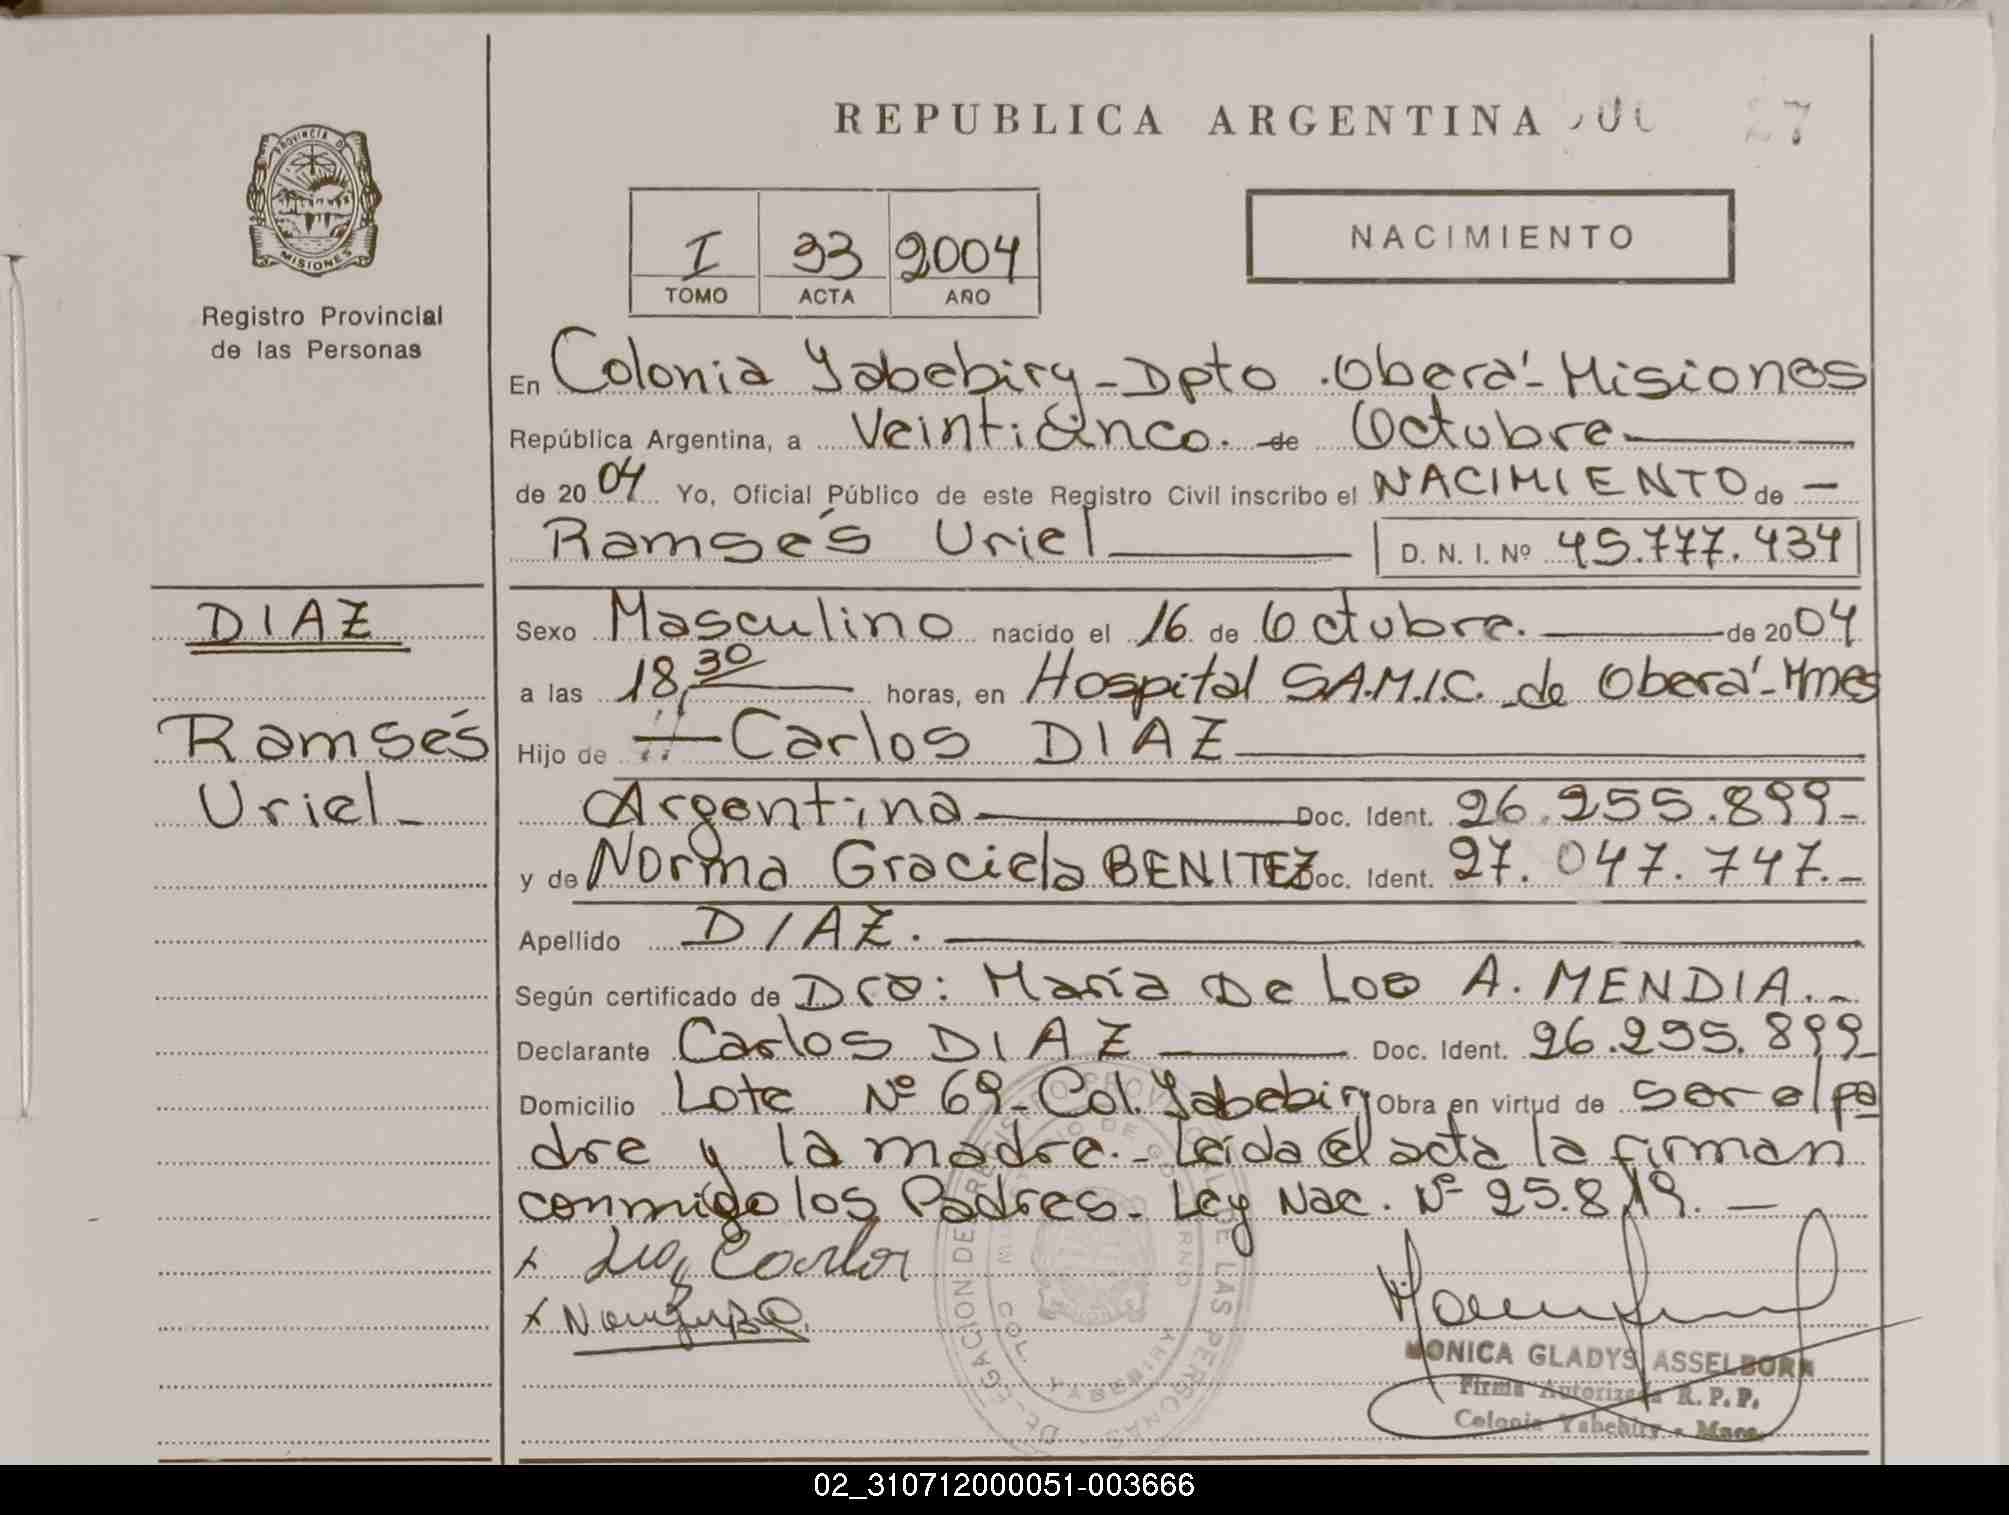 REPUBLICA ARGENTINA
27
PROVINCIA DE
MISIONES
Registro Provincial
de las Personas
I 33 2004
TOMO ACTA AÑO
NACIMIENTO
En Colonia Yabebiry - Dpto. Oberá - Misiones
República Argentina, a Veinticinco. de Octubre
de 2004 Yo, Oficial Público de este Registro Civil inscribo el NACIMIENTO de -
Ramsés Uriel D. N. I. Nº 45.777.434
DIAZ
Ramsés
Uriel -
Sexo Masculino nacido el 16 de Octubre. de 2004
a las 18,30 horas, en Hospital S.A.M.I.C. de Oberá - Mnes
Hijo de Carlos DIAZ
Argentina Doc. Ident. 26.255.899 -
y de Norma Graciela BENITEZ Doc. Ident. 27.047.747. -
Apellido DIAZ.
Según certificado de Dra: María De Los A. MENDIA. -
Declarante Carlos DIAZ Doc. Ident. 26.255.899 -
Domicilio Lote Nº 69 - Col. Yabebiry Obra en virtud de ser el pa
dre y la madre. - Leida el acta la firman
conmigo los Padres. Ley Nac. Nº 25.819. -
x Diaz Carlos
x
DELEGACION DE REGISTRO PROVINCIAL DE LAS PERSONAS
MINISTERIO DE GOBIERNO
COL. YABEBIRY
MONICA GLADYS ASSELBORN
Firma Autorizada R. P. P.
Colonia Yabebiry - Mnes.
02_310712000051-003666